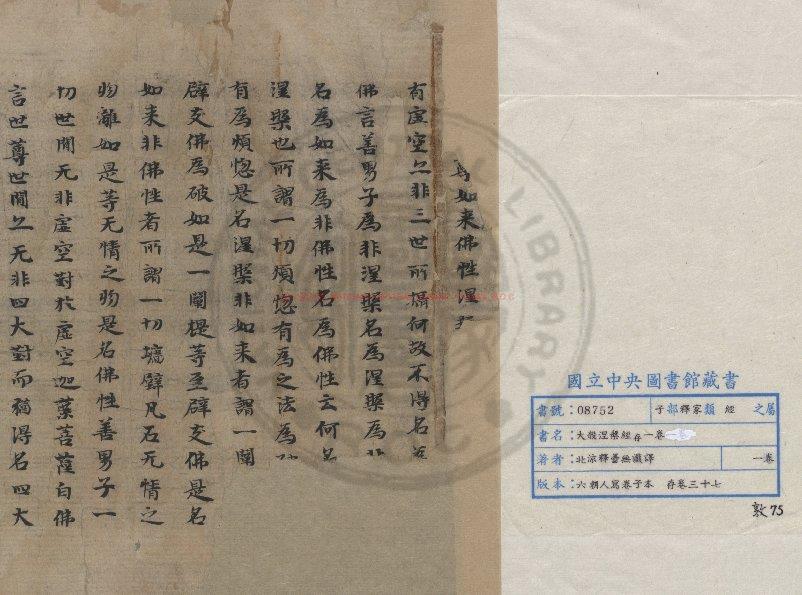 如来佛性涅
有虚空亦非三世所攝何故不得名為
佛言善男子為非涅槃名為涅槃為非
名為如来為非佛性名為佛性云何名
涅槃也所謂一切煩惚有為之法為
有為煩惚是名涅槃非如来者謂一闡
辟支佛為破如是一闡提等至辟支佛是名
如来非佛性者所謂一切墻壁瓦石无情之
物離如是等无情之物是名佛性善男子一
切世間无非虚空對於虚空迦葉菩薩白佛
言世尊世間亦无非四大對而猶得名四大
國立中央圖書館藏書
書號：08752 子部釋家類 經 之屬
書名：大般涅槃經存一卷
著者：北涼釋曇無讖譯 一卷
版本：六朝人寫卷子本 存卷三十七
敦75
LIBRARY